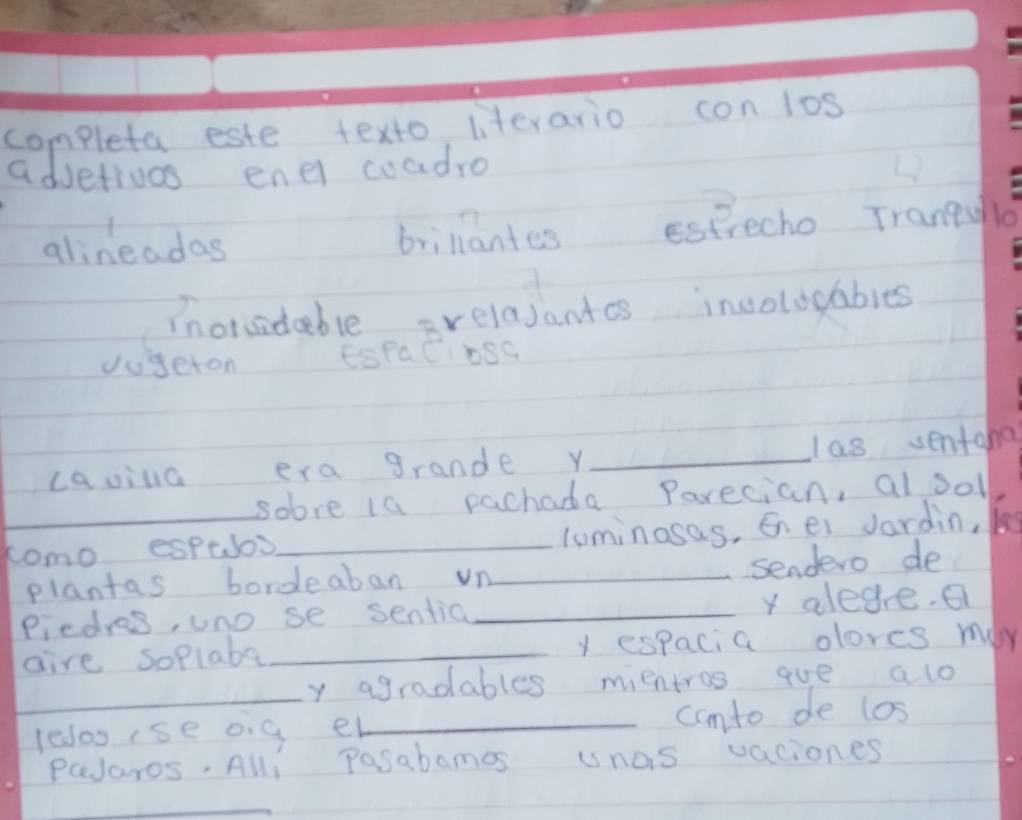 completa este texto literario con los
adjetivos en el cuadro
alineadas brillantes estrecho Tranquilo
inolvidable relajantes
vugeton Espaciosa
La villa era grande y las ventana
sobre la pachada Parecian, al sol,
como espejos luminosas. En el Jardin, las
plantas bordeaban un sendero de
Piedras, uno se sentia y alegre. El
aire soplaba y espacia olores muy
y agradables mientras que a lo
lejos, se oia el canto de los
Pajaros. Alli Pasabamos unas vaciones